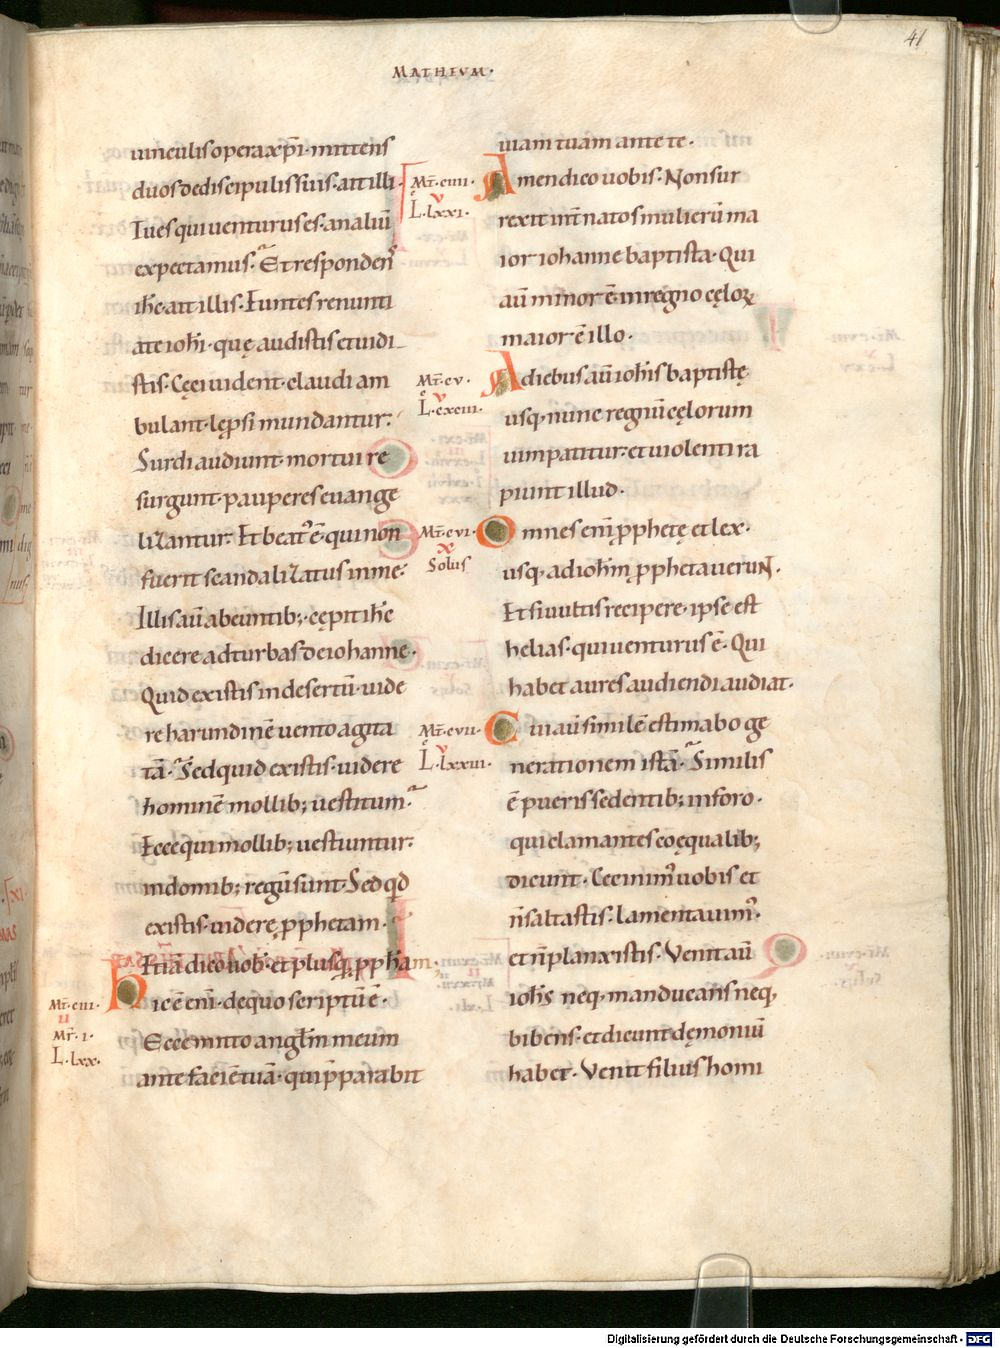 41
MATHEUM·
uinculis opera xp̄i· mittens
duos de discipulis suis· ait illi·
Tu es qui uenturus es· an aliū
expectamus· Et respondens
ih̄c ait illis· Euntes renunti
ate ioh̄i· quę audistis et uidi
stis· Cęci uident· claudi am
bulant· lęp̄si mundantur·
Surdi audiunt· mortui re
surgunt· pauperes euange
lizantur· Et beat' ē qui non
fuerit scandalizatus in me·
Illis aū abeuntib; cępit ih̄c
dicere ad turbas de iohanne·
Quid existis in desertū· uide
re harundinē uento agita
tā· Sed quid existis· uidere
hominē mollib; uestitum·
Ecce qui mollib; uestiuntur·
in domib; regū sunt· Sed qd
existis· uiderę p̱phetam·
Etiā dico uob̄· et plusq̄ p̱phetam
Hic ē eni· de quo scriptū ē·
Ecce mitto angl̄m meum
ante faciē tuā· qui p̄parabit
Mt̄·ciii·
II
Mr̄·i·
L·lxx·
uiam tuam ante te·
Amen dico uobis· Non sur
rexit int̄ natos mulierū ma
ior iohanne baptista· Qui
aū minor ē in regno cęloꝝ
maior ē illo·
A diebus aū ioh̄is baptistę
usq; nunc regnū cęlorum
uim patitur· et uiolenti ra
piunt illud·
Omnes eni p̱phetę et lex·
usq; ad ioh̄m p̱phetaueruN·
Et si uultis recipere· ipse est
helias· qui uenturus ē· Qui
habet aures audiendi audiat·
Cui aū similē estimabo ge
nerationem istā· Similis
ē pueris sedentib; in foro·
qui clamantes coęqualib;
dicunt· Cecinim' uobis et
n̄ saltastis· lamentauim'·
et n̄ planxistis· Venit aū
ioh̄s neq; manducans neq;
bibens· et dicunt dęmoniū
habet· Venit filius homi
Mt̄·ciiii·
V
L·lxxi·
Mt̄·cv·
V
L·cxciii·
Mt̄·cvi·
X
Solus
Mt̄·cvii·
V
L·lxxiii·
Digitalisierung gefördert durch die Deutsche Forschungsgemeinschaft - DFG